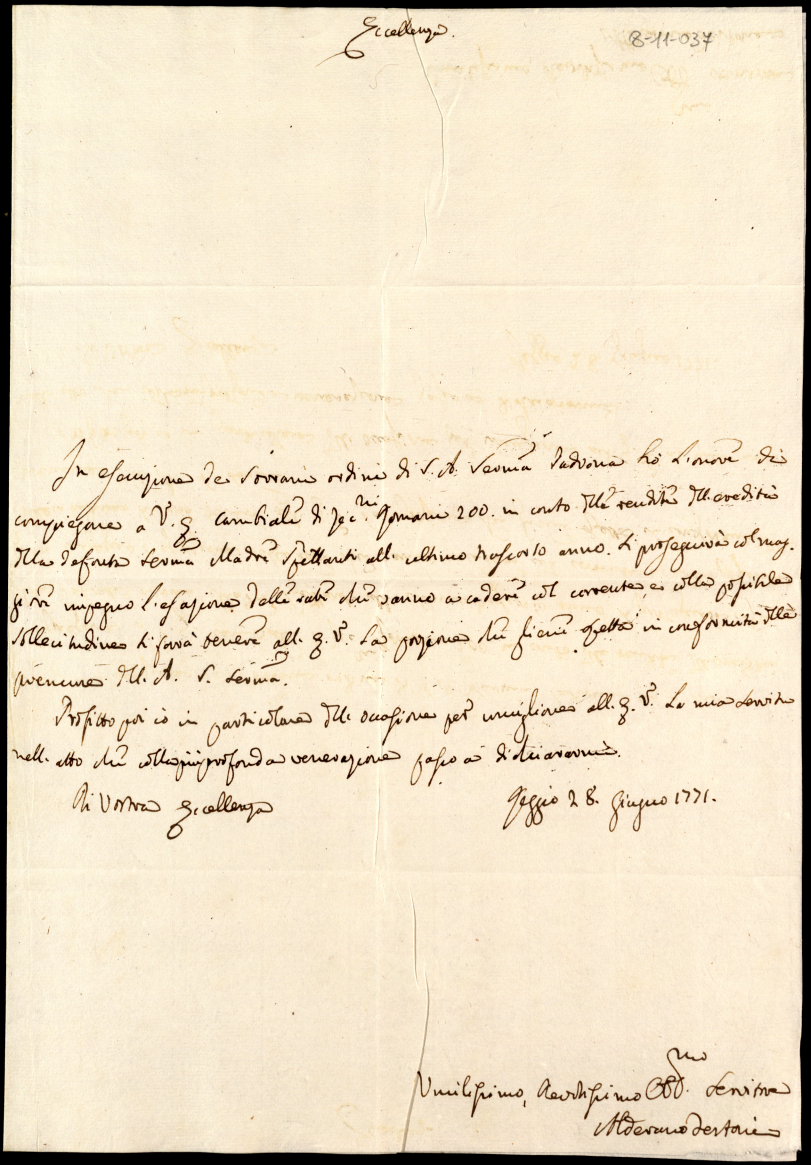 8-11-037
Eccellenza.
In esecuzione de Sovrani ordini di S. A. Serma Padrona hò l'onore di
compiegare a V. E. Cambiale di Zec.ni Romani 200. in conto delle rendite dell'eredità
della defonta Serma Madre spettanti all'ultimo trascorso anno. Si proseguirà col mag-
gior impegno l'esazione delle rate che vanno a cadere col corrente, e colla possibile
sollecitudine si farà tenere all'E. V. La porzione che spetta in conformità delle
premure dell'A. S. Serma.
Profitto poi io in particolare dell'occasione per umigliare all'E. V. La mia servitù
nell'atto che colla più profonda venerazione passo a dichiararmi.
Di Vostra Eccellenza
Reggio 28. Giugno 1771.
Umilissimo, Devotissimo Obb.mo Servitore
Alderano